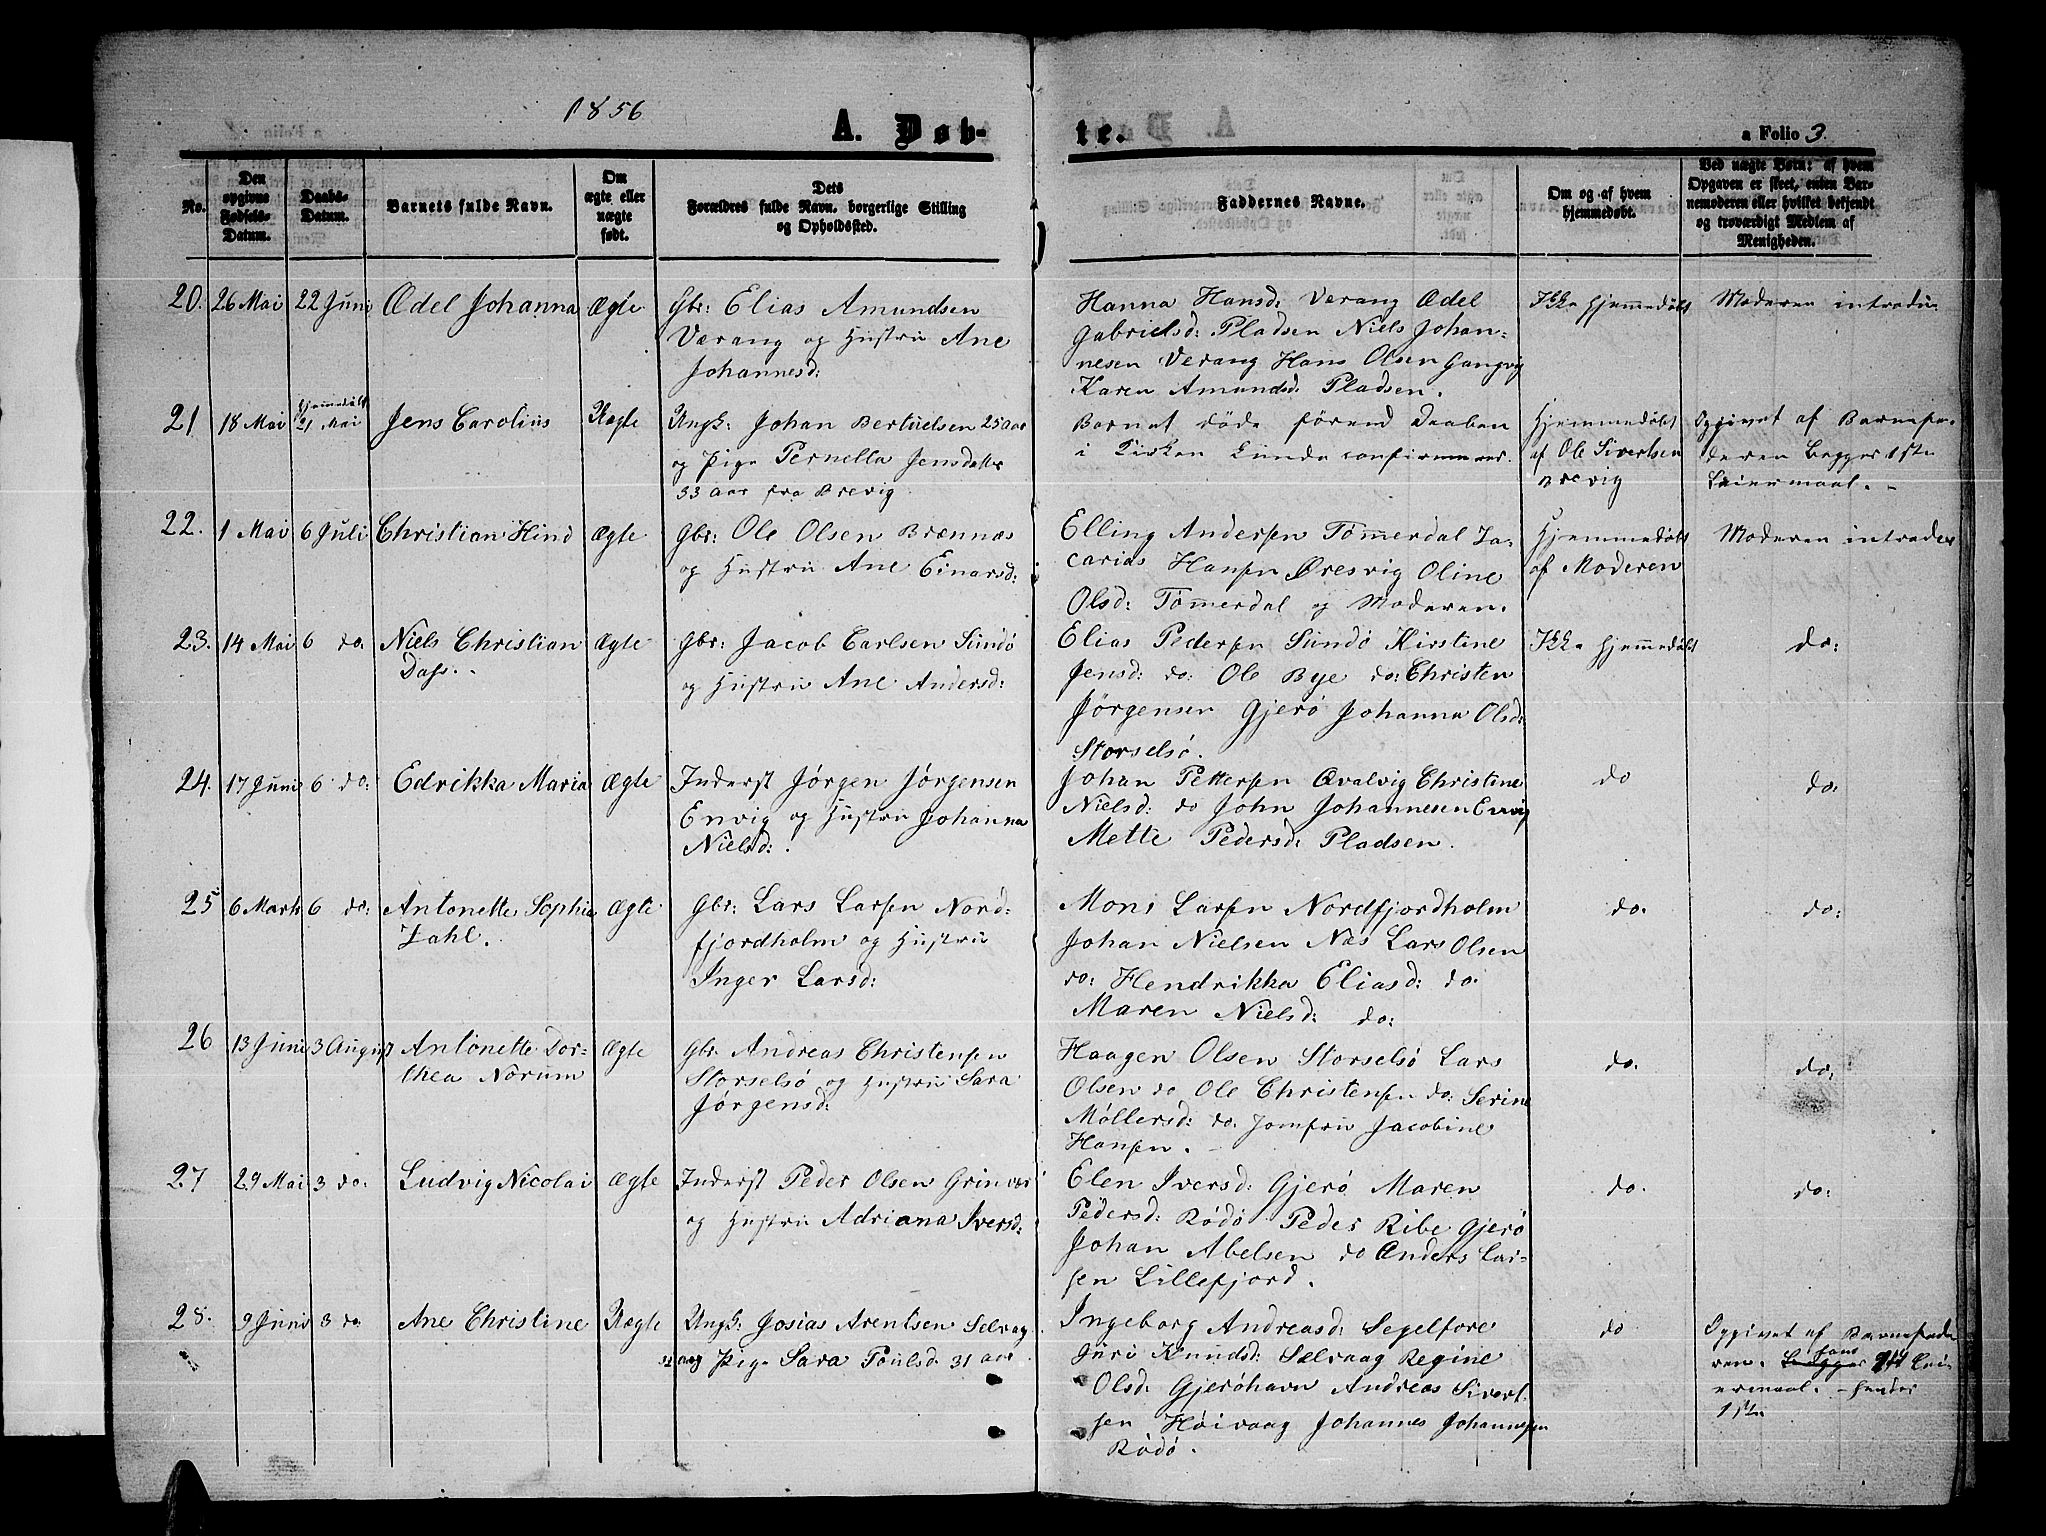 1856
A. Døb-
te.
a Folio 3.
No.
Den
opgivne
Fødsels-
Datum.
Daabs-
Datum.
Barnets fulde Navn.
Om
ægte eller
uægte
født.
Dets
Forældres fulde Navn, borgerlige Stilling
og Opholdssted.
Faddernes Navne.
Om og af hvem
hjemmedøbt.
Ved uægte Børn: af hvem
Opgaven er skeet, enten Bar-
nemoderen eller hvilket bekjendt
og troværdigt Medlem af
Menigheden.
20. 26 Mai 22 Juni Ædel Johanna Ægte Gbr: Elias Amundsen
Værang og Hustru Ane
Johannesd:
Hanna Hansd: Værang Ædel
Gabrielsd: Pladsen Niels Johan-
nesen Verang Hans Olsen Gangvig
Karen Amundsd: Pladsen.
Ikke hjemmedøbt
Moderen introdu
21 18 Mai hjemmedøbt
21 Mai Jens Carolius Uægte Ungk: Johan Bertuelsen 25 aar
og Pige Pernella Jensdatter
33 aar fra Brevig
Barnet døde førend Daaben
i Kirken kunde confirmeres.
Hjemmedøbt
af Ole Sivertsen
Brevig
Opgivet af Barnefa-
deren Begges 1ste
Leiermaal. -
22. 1 Mai 6 Juli Christian Hind Ægte Gbr: Ole Olsen Brænnæs
og Hustru Ane Einarsd:
Elling Andersen Tømmerdal Za-
carias Hansen Øresvig Oline
Olsd: Tømmerdal og Moderen.
Hjemmedøbt
af Moderen
Moderen introdu
23. 14 Mai 6 do: Niels Christian
Dass. Ægte Gbr: Jacob Carlsen Sundø
og Hustru Ane Andersd:
Elias Pedersen Sundø Kirstine
Jensd: do: Ole Bye do: Christen
Jörgensen Gjerö Johanna Olsd:
Storselsö.
Ikke hjemmedøbt
do:
24. 17 Juni 6 do: Edrikka Maria Ægte Inderst Jørgen Jørgensen
Envig og Hustru Johanna
Nielsd:
Johan Pettersen Qvalvig Christine
Nielsd: do John Johannesen Envig
Mette Pedersd: Pladsen.
do
do:
25 6 Marts 6 do: Antonette Sophia
Zahl. Ægte Gbr: Lars Larsen Nord-
fjordholm og Hustru
Inger Larsd:
Mons Larsen Nordfjordholm
Johan Nielsen Næs Lars Olsen
do: Hendrikka Eliasd: do.
Maren Nielsd: do:
do.
do:
26 13 Juni 3 August Antonette Dor-
thea Norum Ægte Gbr. Andreas Christensen
Storselsö og Hustru Sara
Jørgensd:
Haagen Olsen Storselsö Lars
Olsen do Ole Christensen do: Serine
Möllersd: do. Jomfru Jacobine
Hansen. -
do.
do:
27 29 Mai 3 do: Ludvig Nicolai Ægte Inderst Peder Olsen Grinvær
og Hustru Adriana Iversd:
Elen Iversd: Gjerö Maren
Pedersd: Rödö Peder Ribe Gjerö
Johan Abelsen do Anders Lar-
sen Lillefjord.
do.
do:
28. 9 Juni 3 do Ane Christine Uægte Ungk: Josias Arentsen Selvaag
32 aar Pige Sara Poulsd. 31 aar
Ingeborg Andreasd: Segelfore
Guri Knudsd: Sælvaag Regine
Olsd: Gjeröhavn Andreas Sivert-
sen Höivaag Johannes Johannesen
Rödö.
do
Opgivet af Barnefade
ren. Begges hans Lei-
ermaal. - hendes
1ste